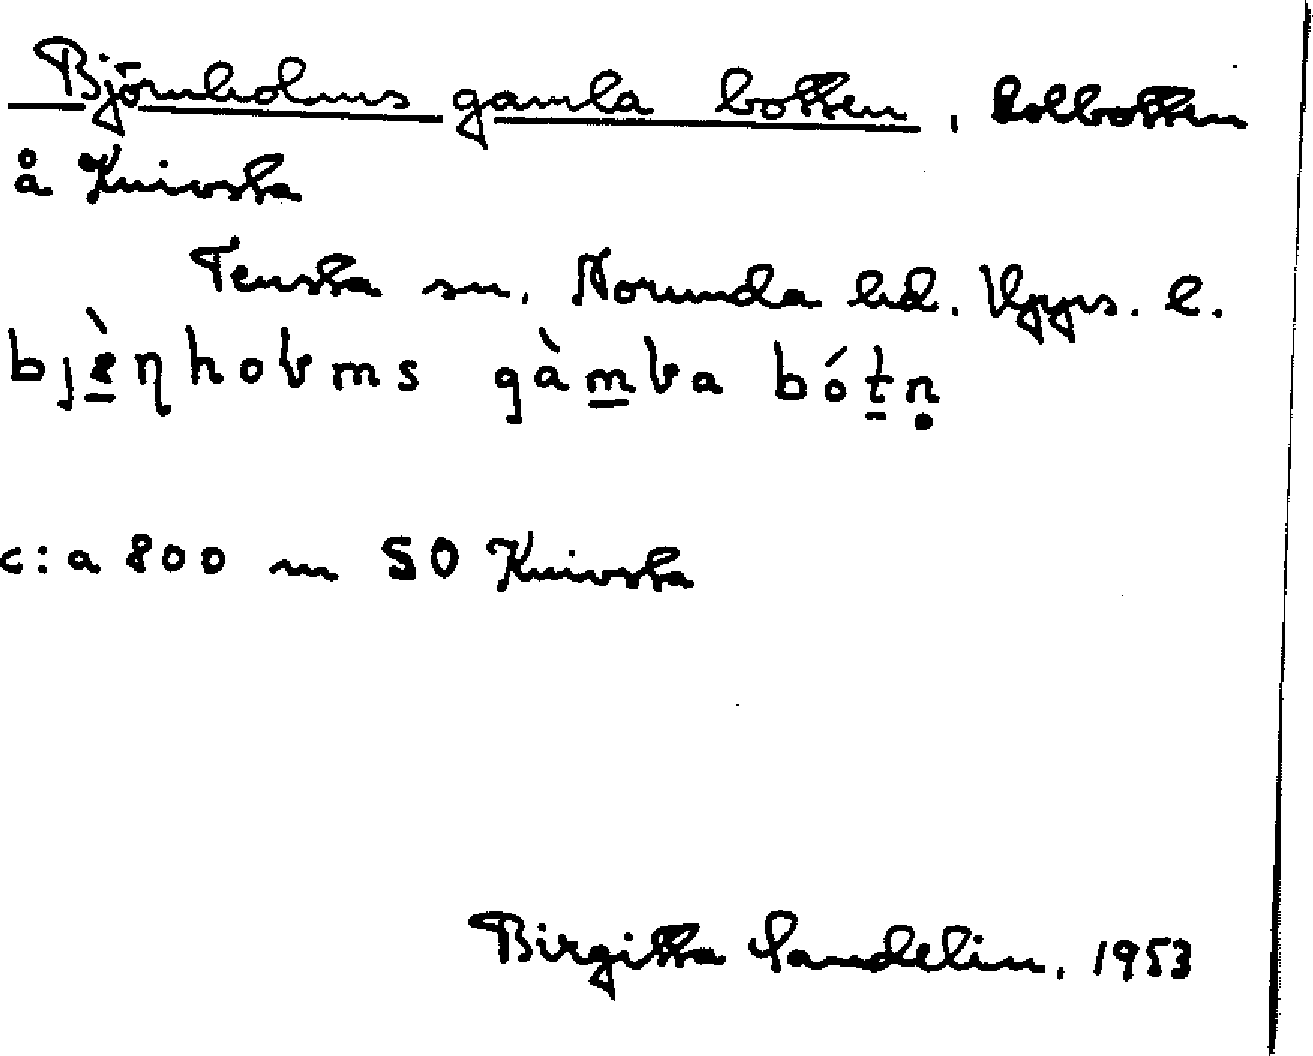 Björnholms gamla botten, kolbotten
å Knivsta
Tensta sn. Norunda hd. Upps. l.
bjè̱ŋhoɫms gàm̱ɫa bóṯṇ
c:a 800 m SO Knivsta
Birgitta Sandelin. 1953